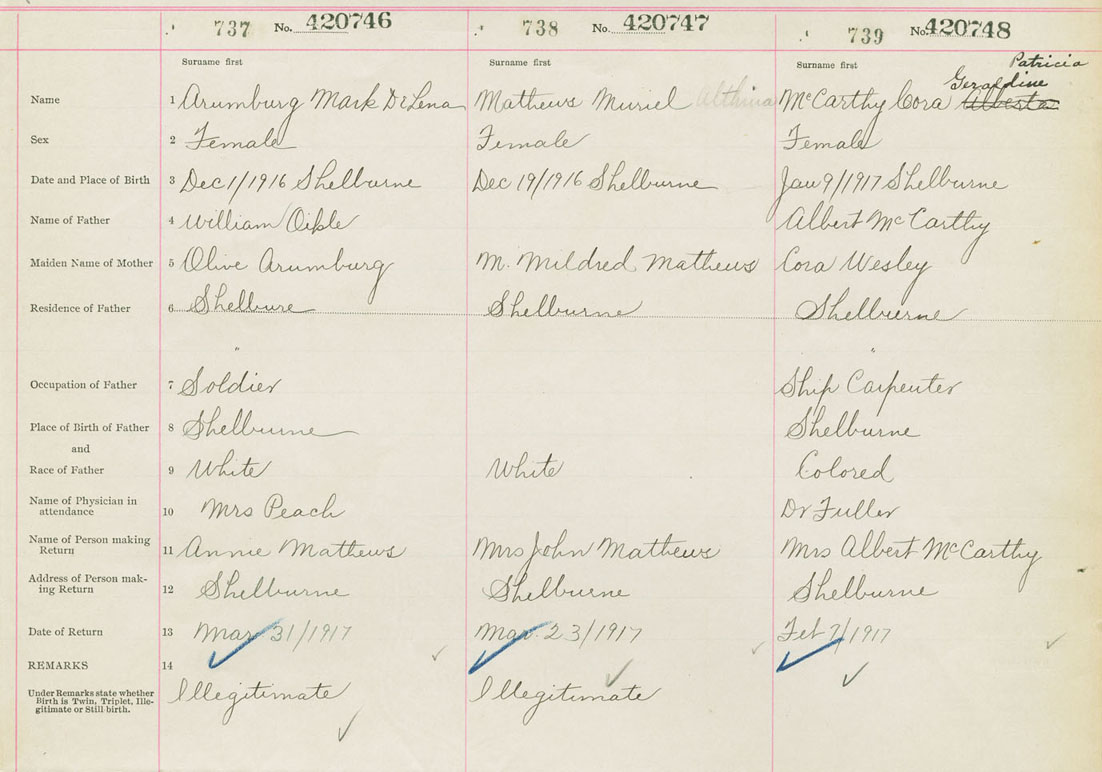 737 No. 420746 738 No. 420747 739 No. 420748
Surname first Surname first Surname first Patricia
Geraldine
Name 1 Arumburg Mark DeLena Mathews Muriel Althina McCarthy Cora Alvesta
Sex 2 Female Female Female
Date and Place of Birth 3 Dec 1/1916 Shelburne Dec 19/1916 Shelburne Jan 9/1917 Shelburne
Name of Father 4 William Albert McCarthy
Maiden Name of Mother 5 Olive Arumburg M. Mildred Mathews Cora Wesley
Residence of Father 6 Shelbure Shelburne Shelburne
" "
Occupation of Father 7 Soldier Ship Carpenter
Place of Birth of Father 8 Shelburne Shelburne
and
Race of Father 9 White White Colored
Name of Physician in
attendance 10 Mrs Peach Dr Fuller
Name of Person making
Return 11 Annie Mathews Mrs John Mathews Mrs Albert McCarthy
Address of Person mak-
ing Return 12 Shelburne Shelburne Shelburne
Date of Return 13 Mar 31/1917 Mar. 23/1917 Feb 7/1917
REMARKS 14
Under Remarks state whether
Birth is Twin, Triplet, Ille-
gitimate or Still-birth. Illegitimate Illegitimate